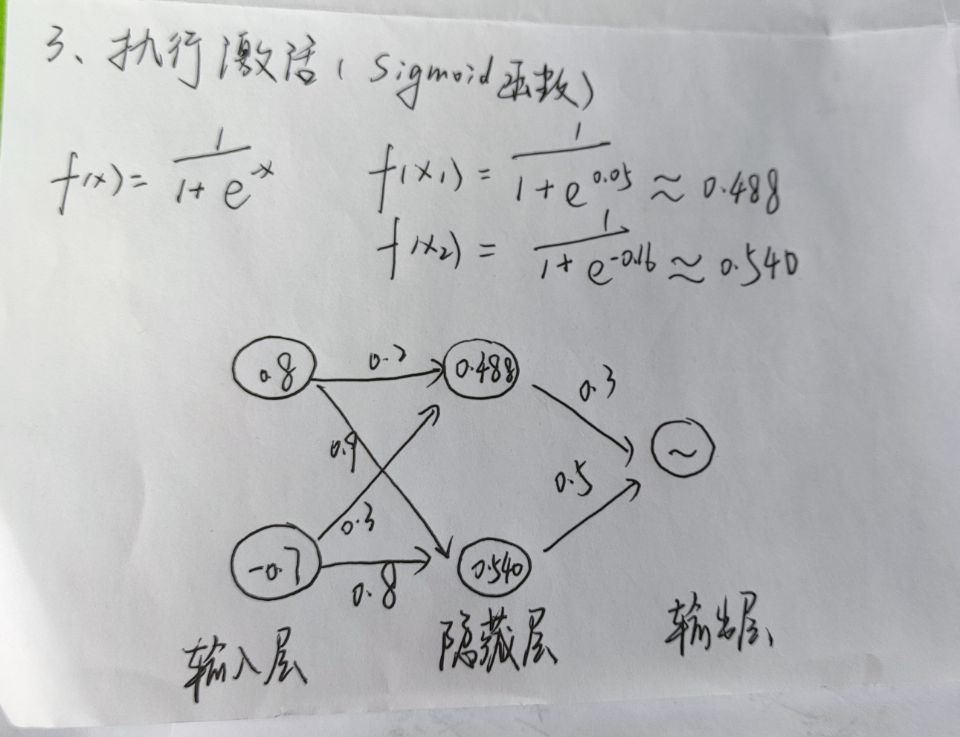 3、执行激活(Sigmoid函数)
f(x) = 1 / (1 + e^-x)
f(x₁) = 1 / (1 + e^0.05) ≈ 0.488
f(x₂) = 1 / (1 + e^-0.16) ≈ 0.540
0.8
0.2
0.488
0.3
0.9
~
0.5
0.3
-0.7
0.8
0.540
输入层
隐藏层
输出层